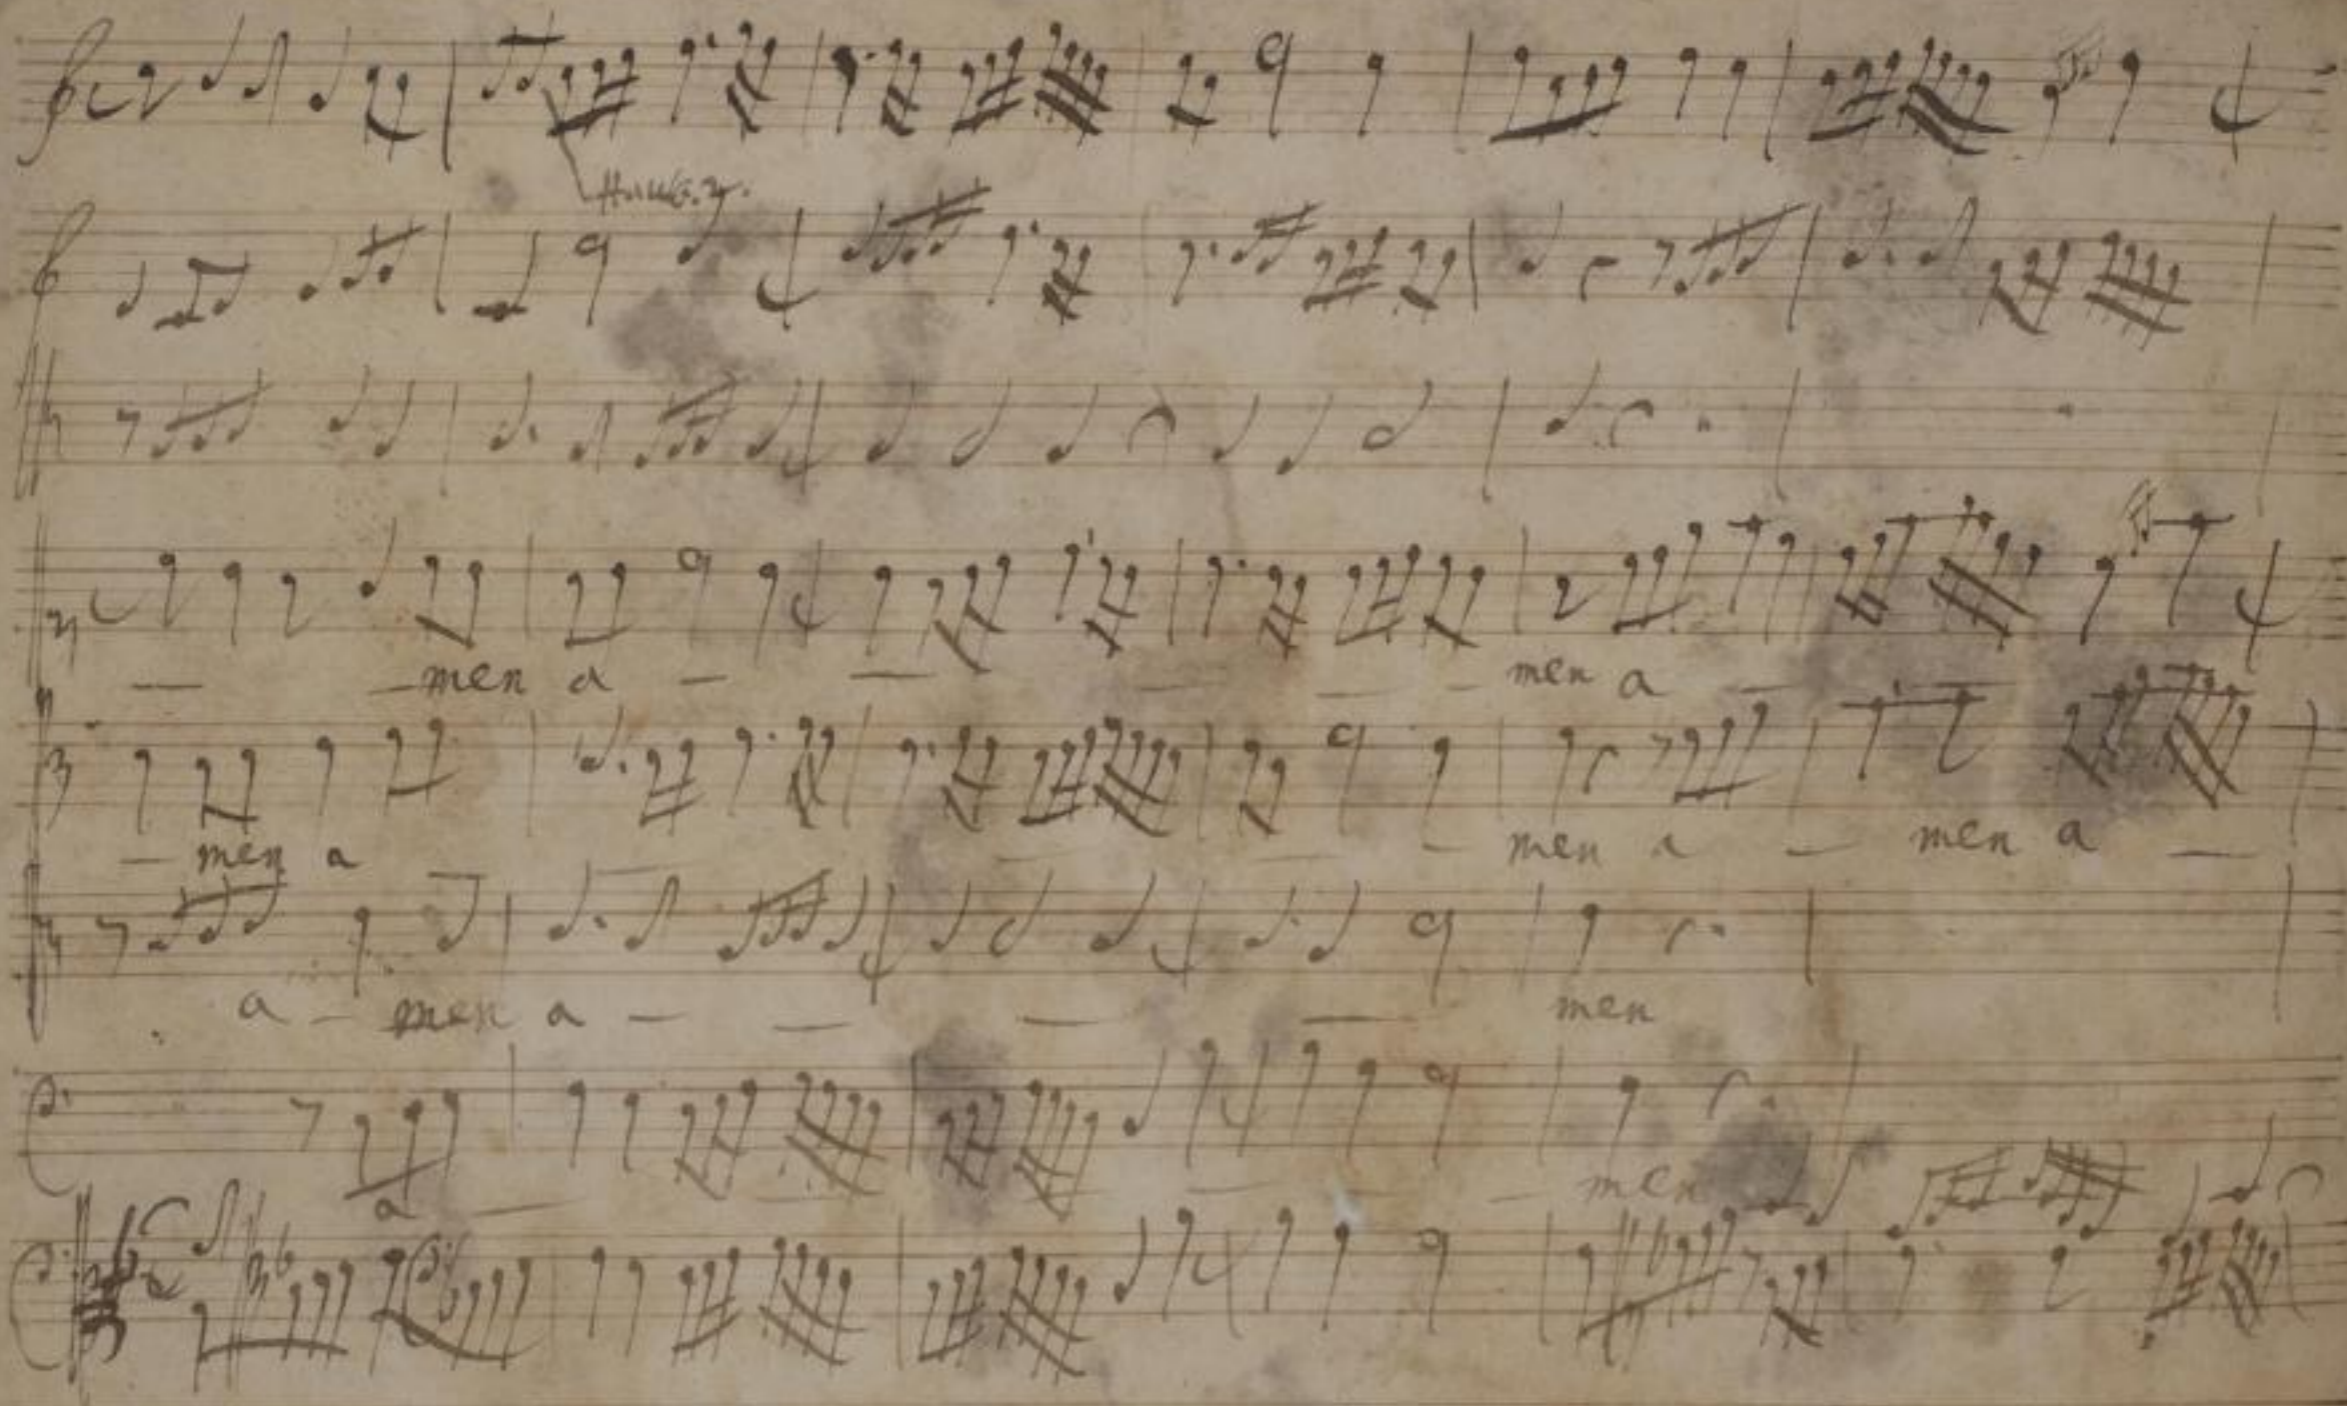 men a men a
men a men a men a
a men a men
a men